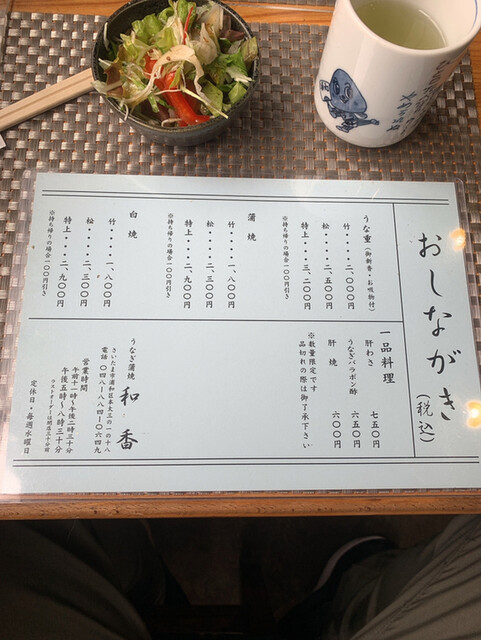 おしながき（税込）
うな重（御新香・お吸物付）
竹・・・・二、〇〇〇円
松・・・・二、五〇〇円
特上・・・三、二〇〇円
※持ち帰りの場合一〇〇円引き
蒲焼
竹・・・・一、八〇〇円
松・・・・二、三〇〇円
特上・・・二、九〇〇円
※持ち帰りの場合一〇〇円引き
白焼
竹・・・・一、八〇〇円
松・・・・二、三〇〇円
特上・・・二、九〇〇円
※持ち帰りの場合一〇〇円引き
一品料理
肝わさ 七五〇円
うなぎバラポン酢 六五〇円
肝焼 六〇〇円
※数量限定です
品切れの際は御了承下さい
うなぎ蒲焼 和香
さいたま市浦和区本太三の一の十八
電話 〇四八-八八四-〇六四九
営業時間
午前十一時～午後二時三十分
午後五時～八時三十分
ラストオーダーは閉店三十分前
定休日・毎週水曜日